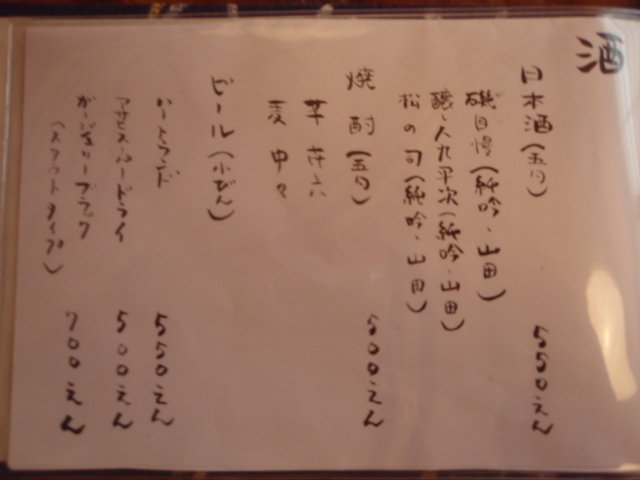 酒
日本酒(五勺) 550えん
磯自慢(純吟・山田)
醸し人九平次(純吟・山田)
松の司(純吟・山田)
焼酎(五勺) 500えん
芋
麦 中々
ビール(小びん)
ハートランド 550えん
アサヒスーパードライ 500えん
ガージェリーブラック 700えん
(スタウトタイプ)